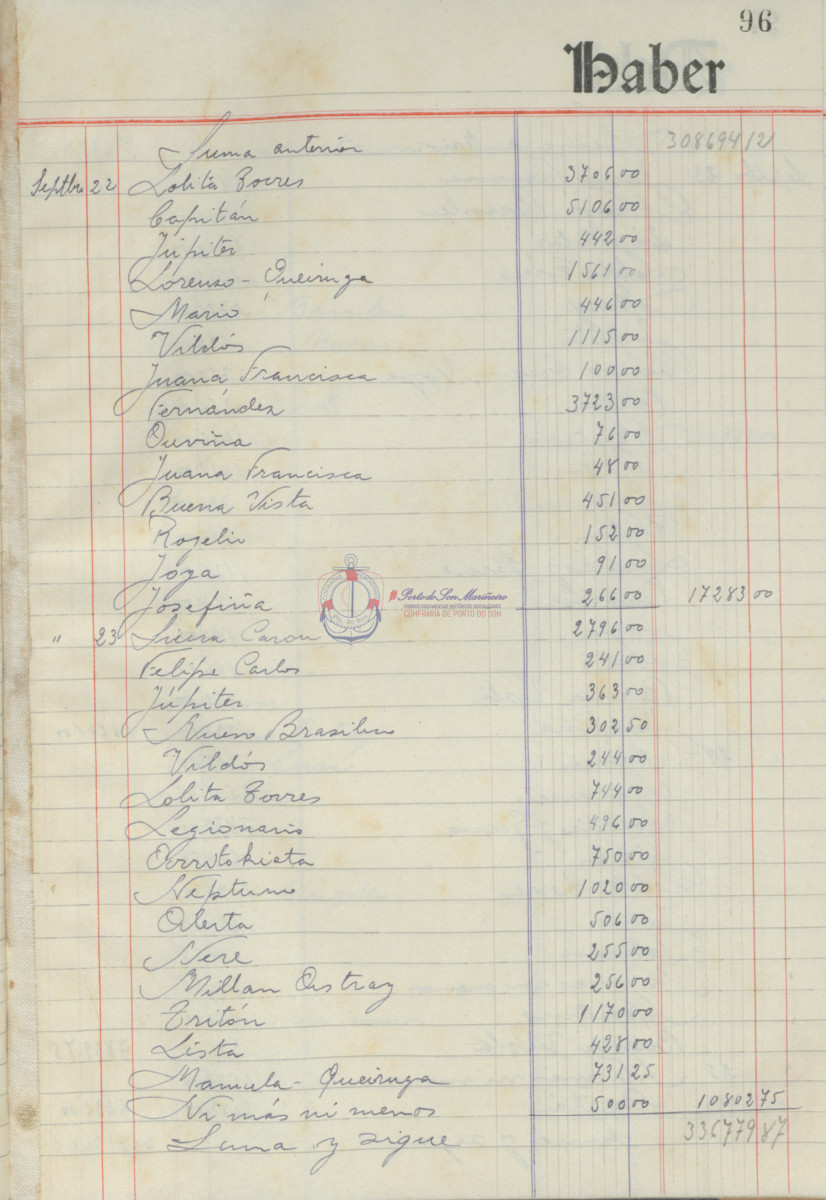 96
Haber
Suma anterior 308694 12
Septbre 22 Lolita Torres 3706 00
Capitán 5106 00
Júpiter 442 00
Lorenzo - Queiruga 1561 00
Mario 446 00
Vildós 1115 00
Juana Francisca 100 00
Fernández 3723 00
Ouviña 76 00
Juana Francisca 48 00
Buena Vista 451 00
Rogelio 152 00
Joya 91 00
Josefiña 266 00 17283 00
" 23 Carou 2796 00
Felipe Carlos 241 00
Júpiter 363 00
Nuevo Brasileu 302 50
Vildós 244 00
Lolita Torres 744 00
Legionario 496 00
Orritokieta 750 00
Neptuno 1020 00
Alerta 506 00
Nere 255 00
Millan Astray 256 00
Tritón 1170 00
Lista 428 00
Manuela - Queiruga 731 25
Ni más ni menos 500 00 10802 75
Suma y sigue 336779 87
#Porto do Son Mariñeiro
FONDOS DOCUMENTAIS HISTÓRICOS DIXITALIZADOS
CONFRARÍA DE PORTO DO SON